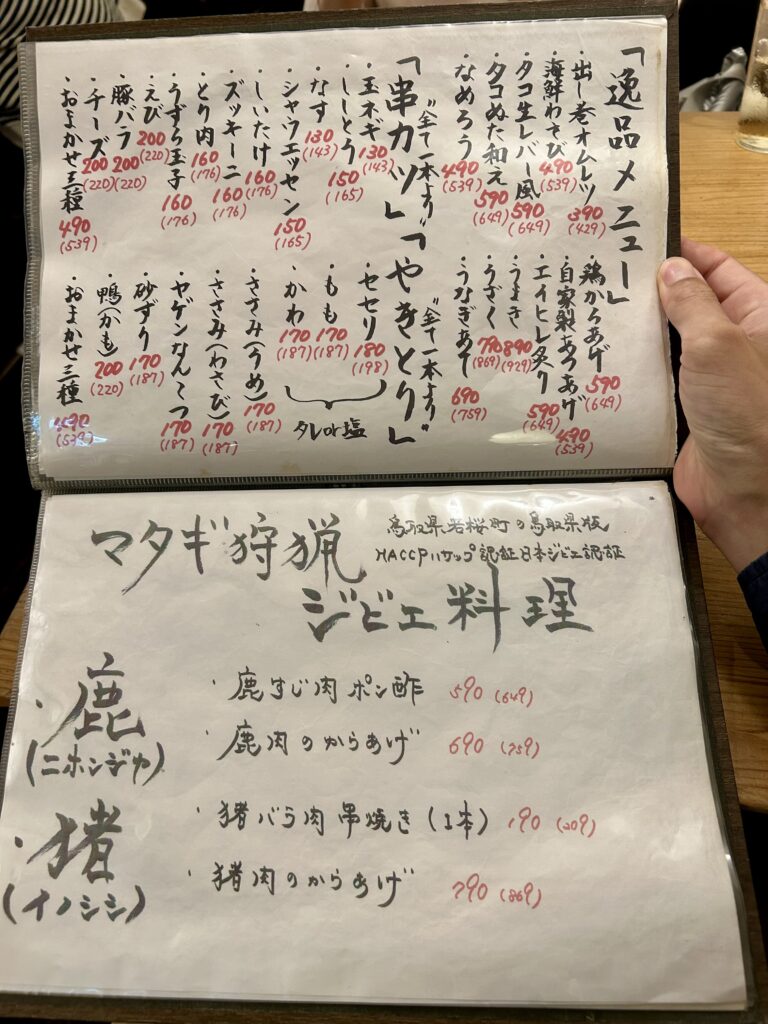 「逸品メニュー」
・出し巻オムレツ 390 (429)
・海鮮わさび 490 (539)
・タコ生レバー風 590 (649)
・タコぬた和え 590 (649)
・なめろう 490 (539)
・鶏からあげ 590 (649)
・自家製あつあげ 490 (539)
・エイヒレ炙り 590 (649)
・うまき 890 (929)
・うざく 790 (869)
・うなぎあて 690 (759)
「串カツ」
"全て一本より"
・玉ネギ 130 (143)
・ししとう 150 (165)
・なす 130 (143)
・シャウエッセン 150 (165)
・しいたけ 160 (176)
・ズッキーニ 160 (176)
・とり肉 160 (176)
・うずら玉子 160 (176)
・えび 200 (220)
・豚バラ 200 (220)
・チーズ 200 (220)
・おまかせ三種 490 (539)
「やきとり」
"全て一本より"
・セセリ 180 (198)
・もも 170 (187)
・かわ 170 (187)
タレor塩
・ささみ(うめ) 170 (187)
・ささみ(わさび) 170 (187)
・ヤゲンなんこつ 170 (187)
・砂ずり 170 (187)
・鴨(かも) 200 (220)
・おまかせ三種 490 (539)
マタギ狩猟
ジビエ料理
鳥取県若桜町の鳥取県版
HACCPハサップ認証日本ジビエ認証
・鹿
(ニホンジカ)
・鹿すじ肉ポン酢 590 (649)
・鹿肉のからあげ 690 (759)
・猪
(イノシシ)
・猪バラ肉串焼き(1本) 190 (209)
・猪肉のからあげ 790 (869)